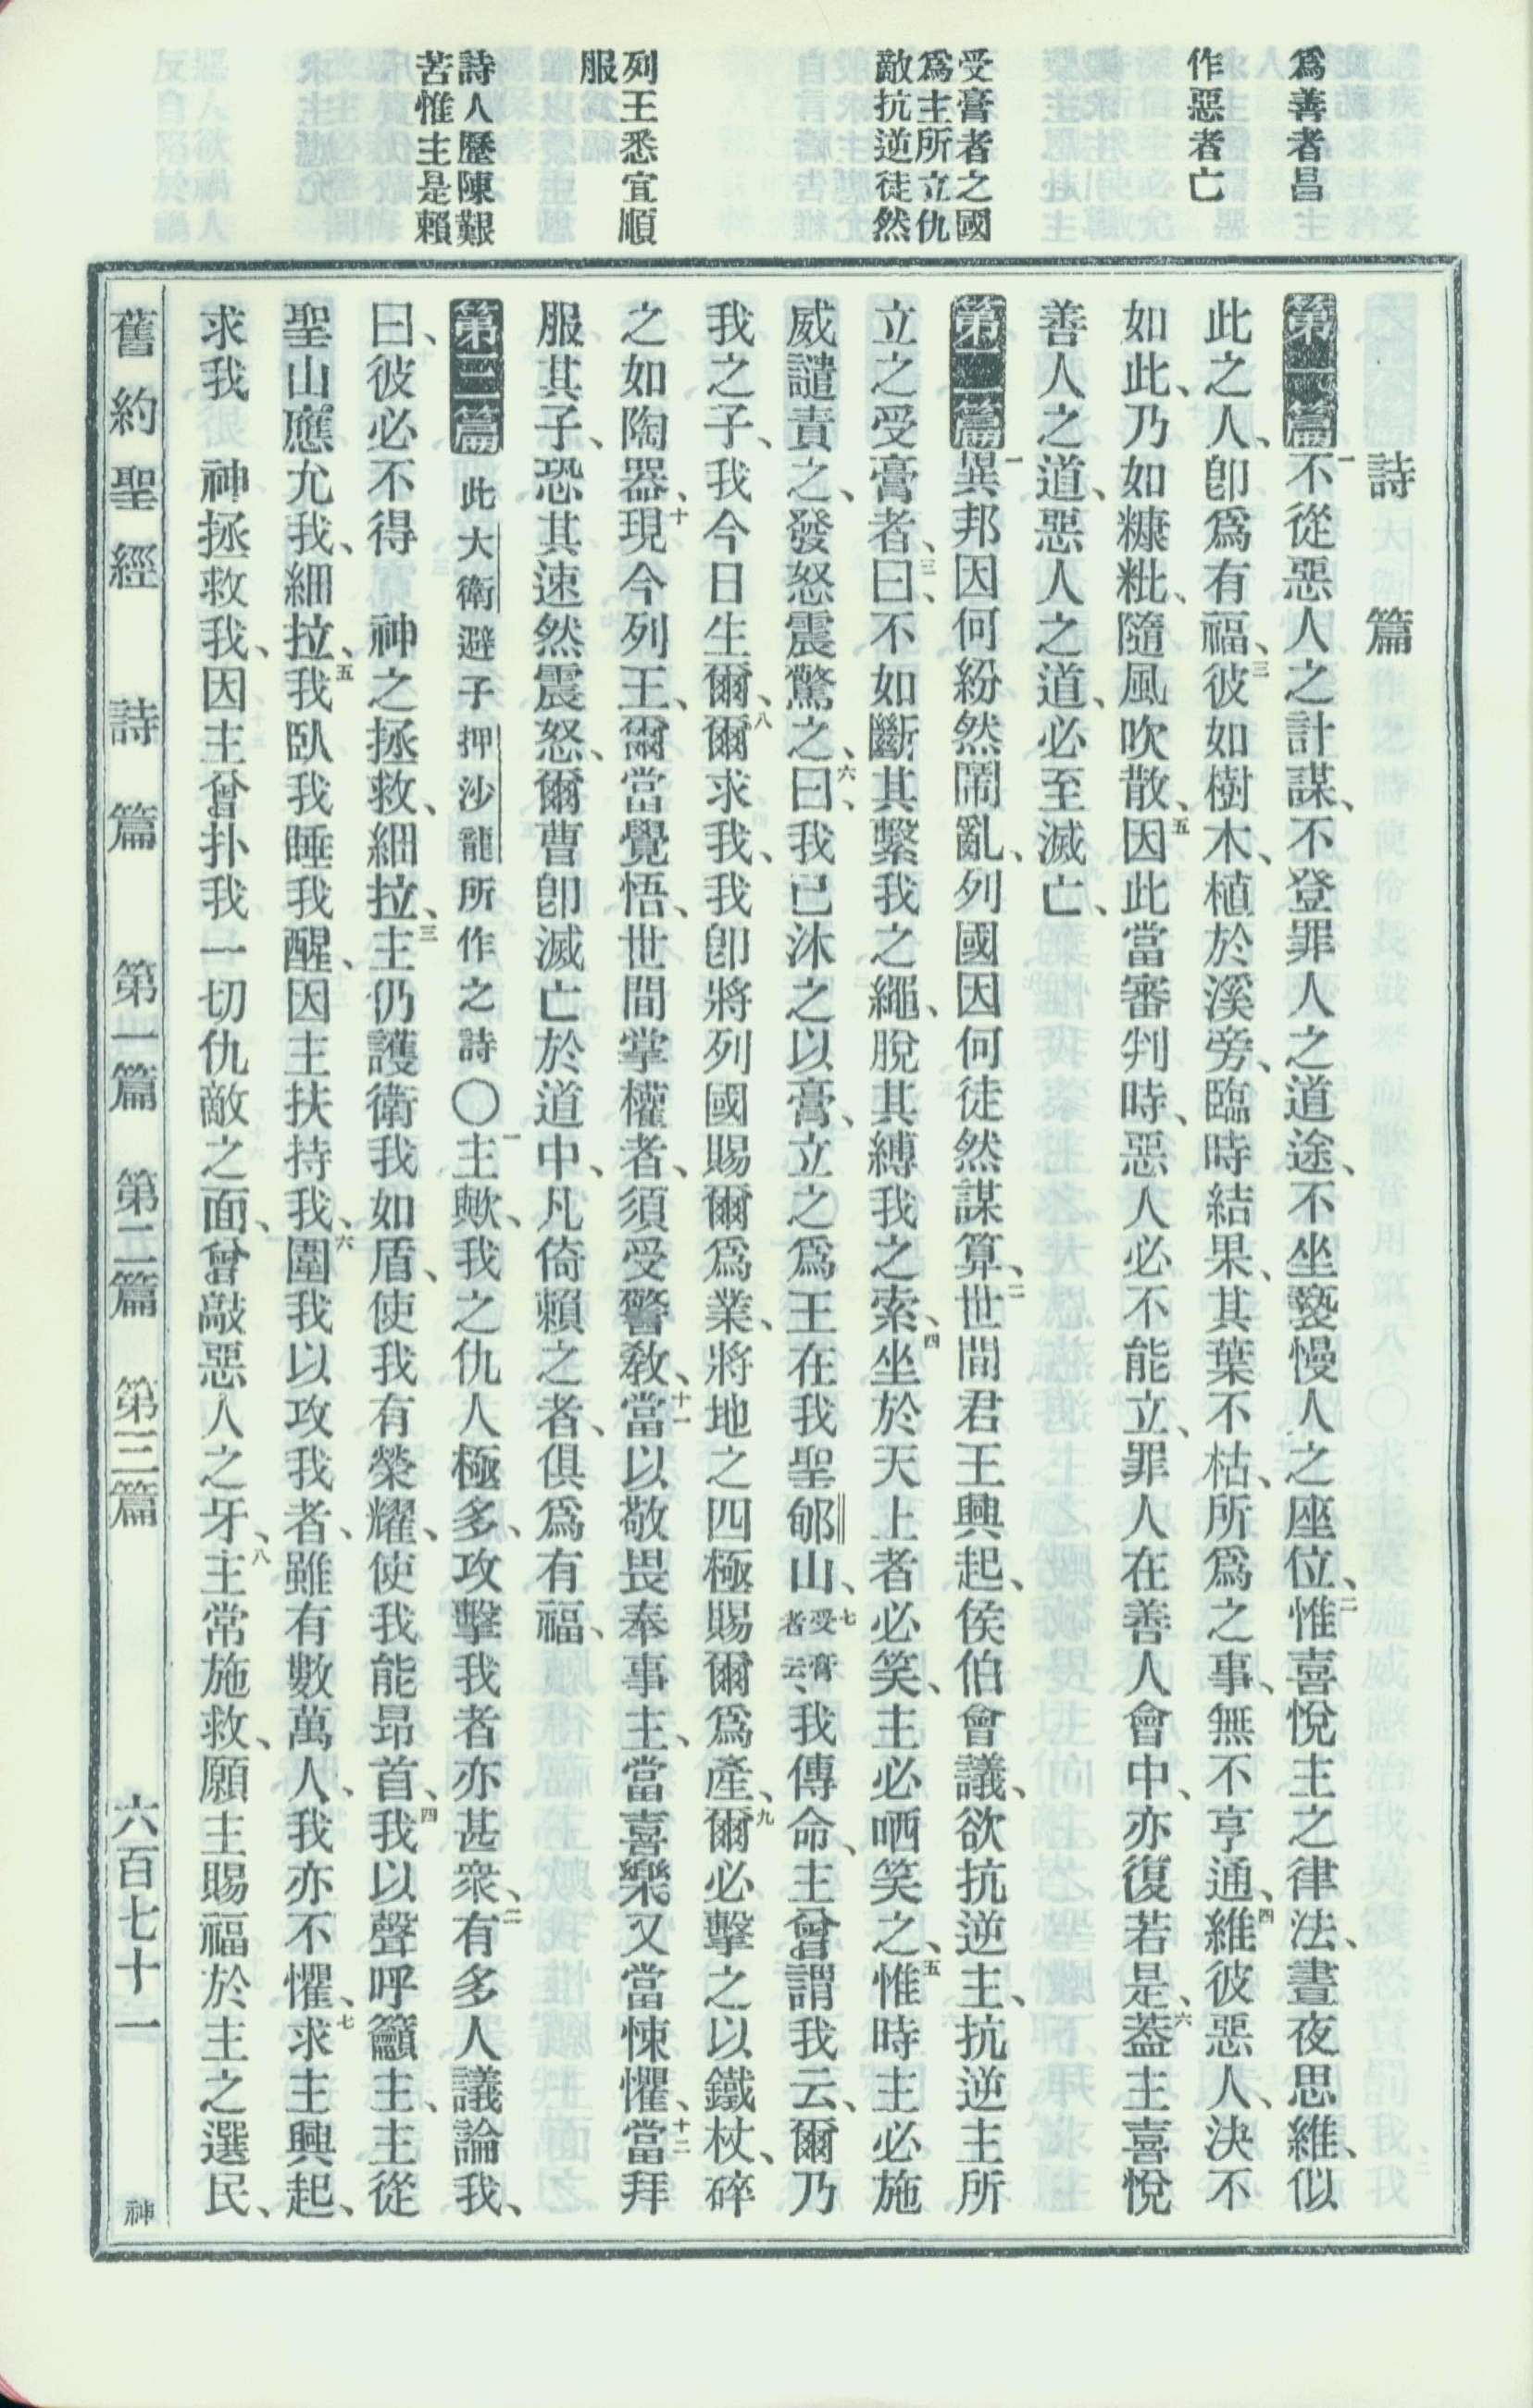 爲善者昌
作惡者亡
受膏者之國
爲主所立仇
敵抗逆徒然
列王悉宜順
服
詩人歷陳艱
苦惟主是賴
詩篇
第一篇 一不從惡人之計謀、不登罪人之道途、不坐褻慢人之座位、二惟喜悅主之律法、晝夜思維、似
此之人、卽爲有福、三彼如樹木、植於溪旁、臨時結果、其葉不枯、所爲之事、無不亨通、四維彼惡人、決不
如此、乃如糠粃、隨風吹散、五因此當審判時、惡人必不能立、罪人在善人會中、亦復若是、六蓋主喜悅
善人之道、惡人之道、必至滅亡、
第二篇 一異邦因何紛然鬧亂、列國因何徒然謀算、二世間君王興起、侯伯會議、欲抗逆主、抗逆主所
立之受膏者、三曰、不如斷其繫我之繩、脫其縛我之索、四坐於天上者必笑、主必哂笑之、五惟時主必施
威譴責之、發怒震驚之、六曰、我已沐之以膏、立之爲王在我聖郇山、七受膏者云、我傳命、主曾謂我云、爾乃
我之子、我今日生爾、八爾求我、我卽將列國賜爾爲業、將地之四極賜爾爲產、九爾必擊之以鐵杖、碎
之如陶器、十現今列王、爾當覺悟、世間掌權者、須受警敎、十一當以敬畏奉事主、當喜樂又當悚懼、十二當拜
服其子、恐其速然震怒、爾曹卽滅亡於道中、凡倚賴之者、俱爲有福、
第三篇 此大衛避子押沙龍所作之詩〇一主歟、我之仇人極多、攻擊我者亦甚衆、二有多人議論我、
曰、彼必不得 神之拯救、細拉、三主仍護衛我如盾、使我有榮耀、使我能昂首、四我以聲呼籲主、主從
聖山應允我、細拉、五我臥我睡我醒、因主扶持我、六圍我以攻我者、雖有數萬人、我亦不懼、七求主興起、
求我 神拯救我、因主曾扑我一切仇敵之面、曾敲惡人之牙、八主常施救、願主賜福於主之選民、
舊約聖經 詩篇 第一篇 第二篇 第三篇 六百七十一 神